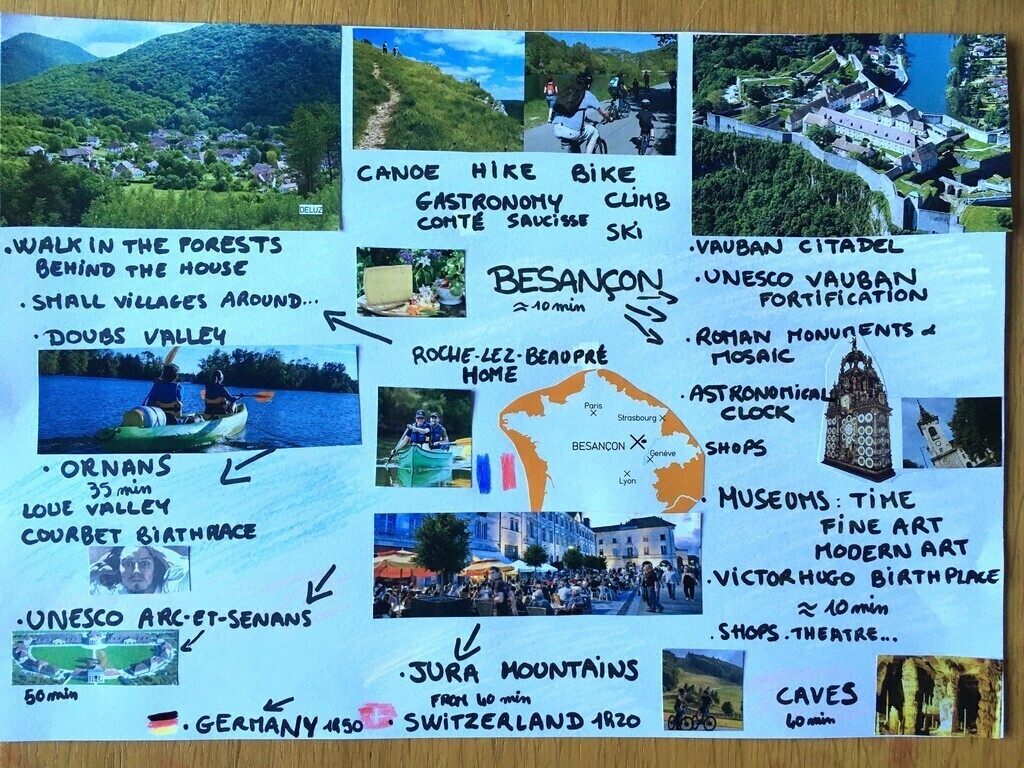 DELUZ
• WALK IN THE FORESTS
BEHIND THE HOUSE
• SMALL VILLAGES AROUND...
• DOUBS VALLEY
• ORNANS
35 min
LOUE VALLEY
COURBET BIRTHPLACE
• UNESCO ARC-ET-SENANS
50 min
• GERMANY 1R50
CANOE HIKE BIKE
GASTRONOMY CLIMB
COMTÉ SAUCISSE
SKI
BESANÇON
≈ 10 min
ROCHE-LEZ-BEAUPRÉ
HOME
Paris
Strasbourg
BESANÇON
Genève
Lyon
• JURA MOUNTAINS
FROM 40 min
• SWITZERLAND 1R20
• VAUBAN CITADEL
• UNESCO VAUBAN
FORTIFICATION
• ROMAN MONUMENTS &
MOSAIC
• ASTRONOMICAL
CLOCK
SHOPS
• MUSEUMS: TIME
FINE ART
MODERN ART
• VICTOR HUGO BIRTHPLACE
≈ 10 min
• SHOPS . THEATRE...
CAVES
40 min